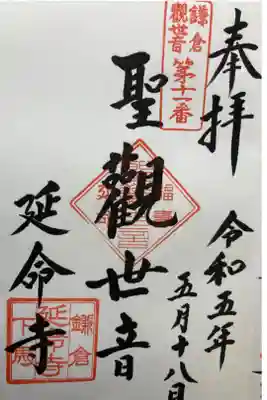 奉拝
令和五年
五月十八日
鎌倉
観世音
第十一番
聖観世音
延命寺
鎌倉
延命寺
下馬